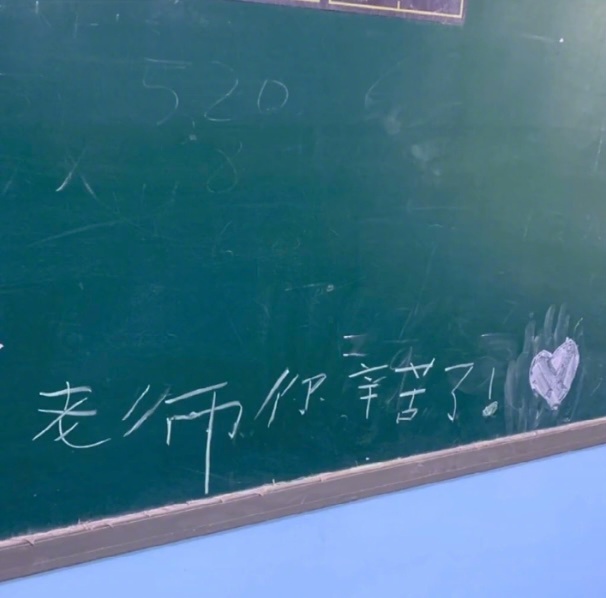 520
老师你辛苦了!